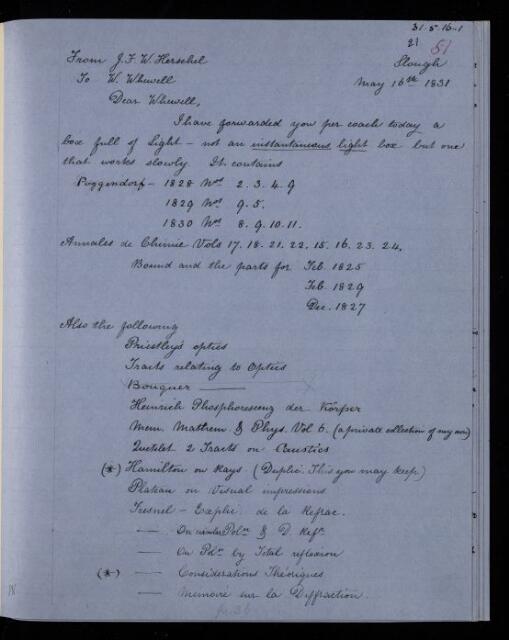 31·5·16·1
21 51
From J. F. W. Herschel Slough
To W. Whewell May 16th 1831
Dear Whewell,
I have forwarded you per coach today a
box full of Light – not an instantaneous light box but one
that works slowly. It contains
Poggendorf – 1828 Nos 2. 3. 4. 9
1829 Nos 9. 5.
1830 Nos 8. 9. 10. 11.
Annales de Chimie Vols 17. 18. 21. 22. 15. 16. 23. 24.
Bound and the parts for Feb. 1825
Feb. 1829
Dec. 1827
Also the following
Priestley's optics
Tracts relating to Optics
Bouguer ——
Heinrich Phosphorescenz der Körper
Mem. Mathem. & Phys. Vol 6. (a private collection of my own)
Quetelet 2 Tracts on Caustics
(*) Hamilton on Rays (Duplic. This you may keep)
Plateau on Visual impressions
Fresnel – Explic. de la Refrac.
—— On circular Poln & D. Refn
—— On Poln by Total reflexion
(*) —— Considerations Théoriques
—— Memoire sur la Diffraction.